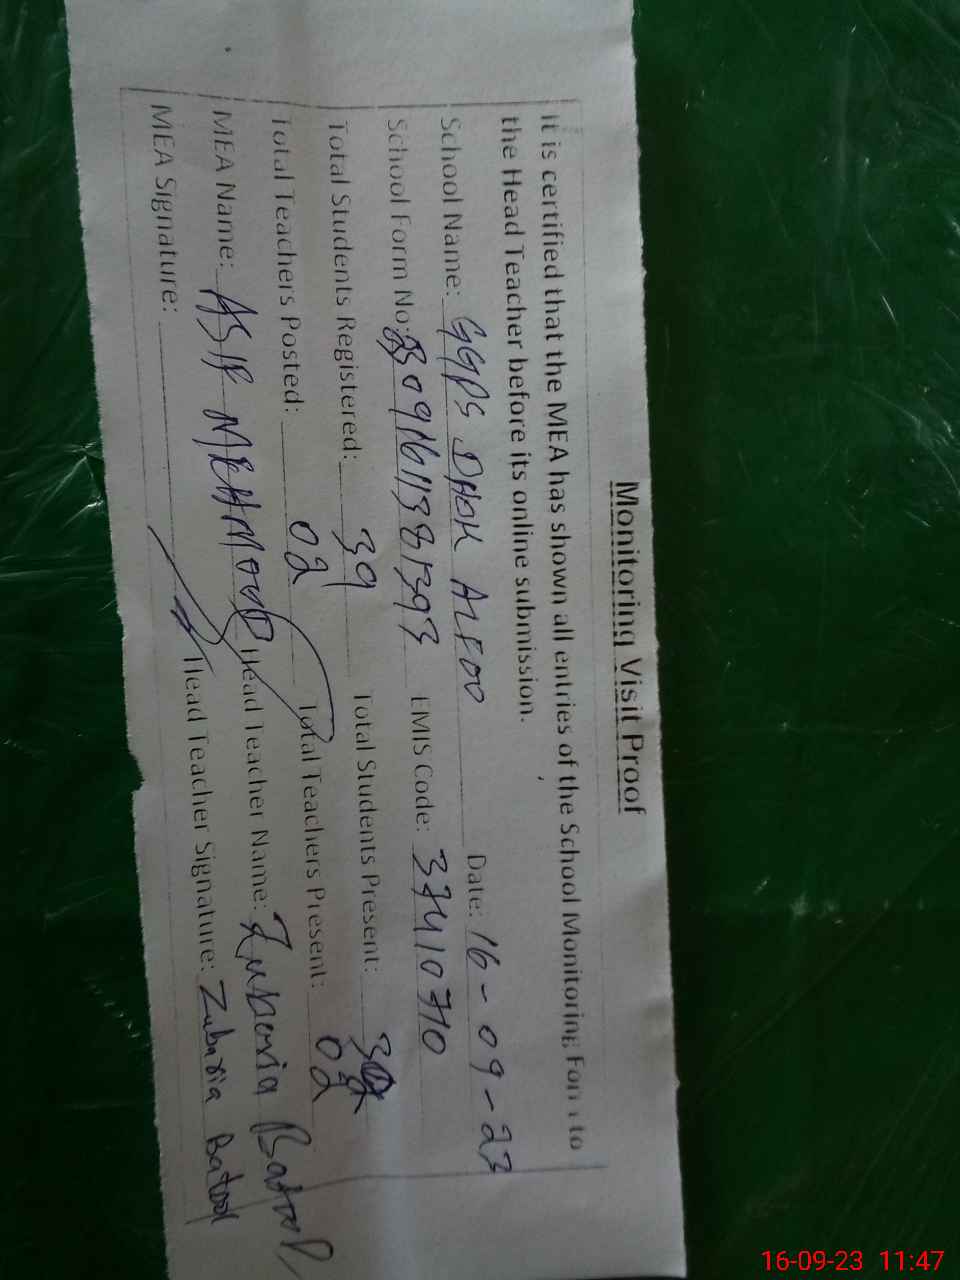 Monitoring Visit Proof
It is certified that the MEA has shown all entries of the School Monitoring Form to
the Head Teacher before its online submission.
School Name: GGPS DHOK ALFOO Date: 16-09-23
School Form No: 3091611381393 EMIS Code: 37410710
Total Students Registered: 39 Total Students Present:
Total Teachers Posted: 02 Total Teachers Present: 02
MEA Name: ASIF MEHMOOD Head Teacher Name: Zubaria Batool
MEA Signature: Head Teacher Signature: Zubaria Batool
16-09-23 11:47